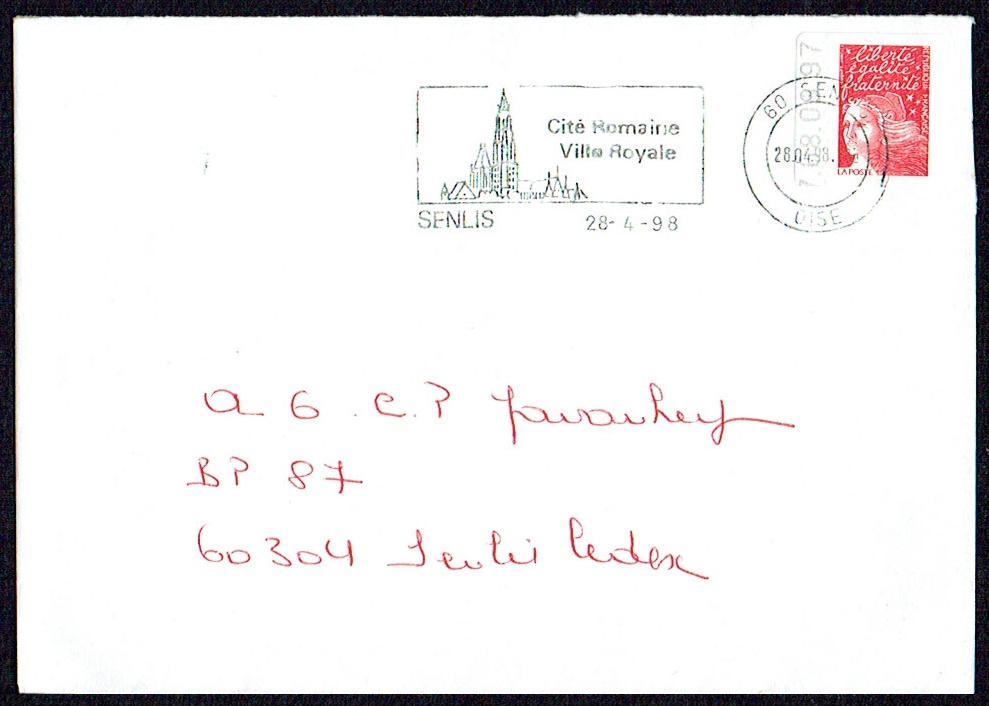 Cité Romaine
Ville Royale
SENLIS 28-4-98
60 SEN
28.04.98.
OISE
liberté
égalité
fraternité
RÉPUBLIQUE FRANÇAISE
LA POSTE
BP 87
60304 Senlis Cedex